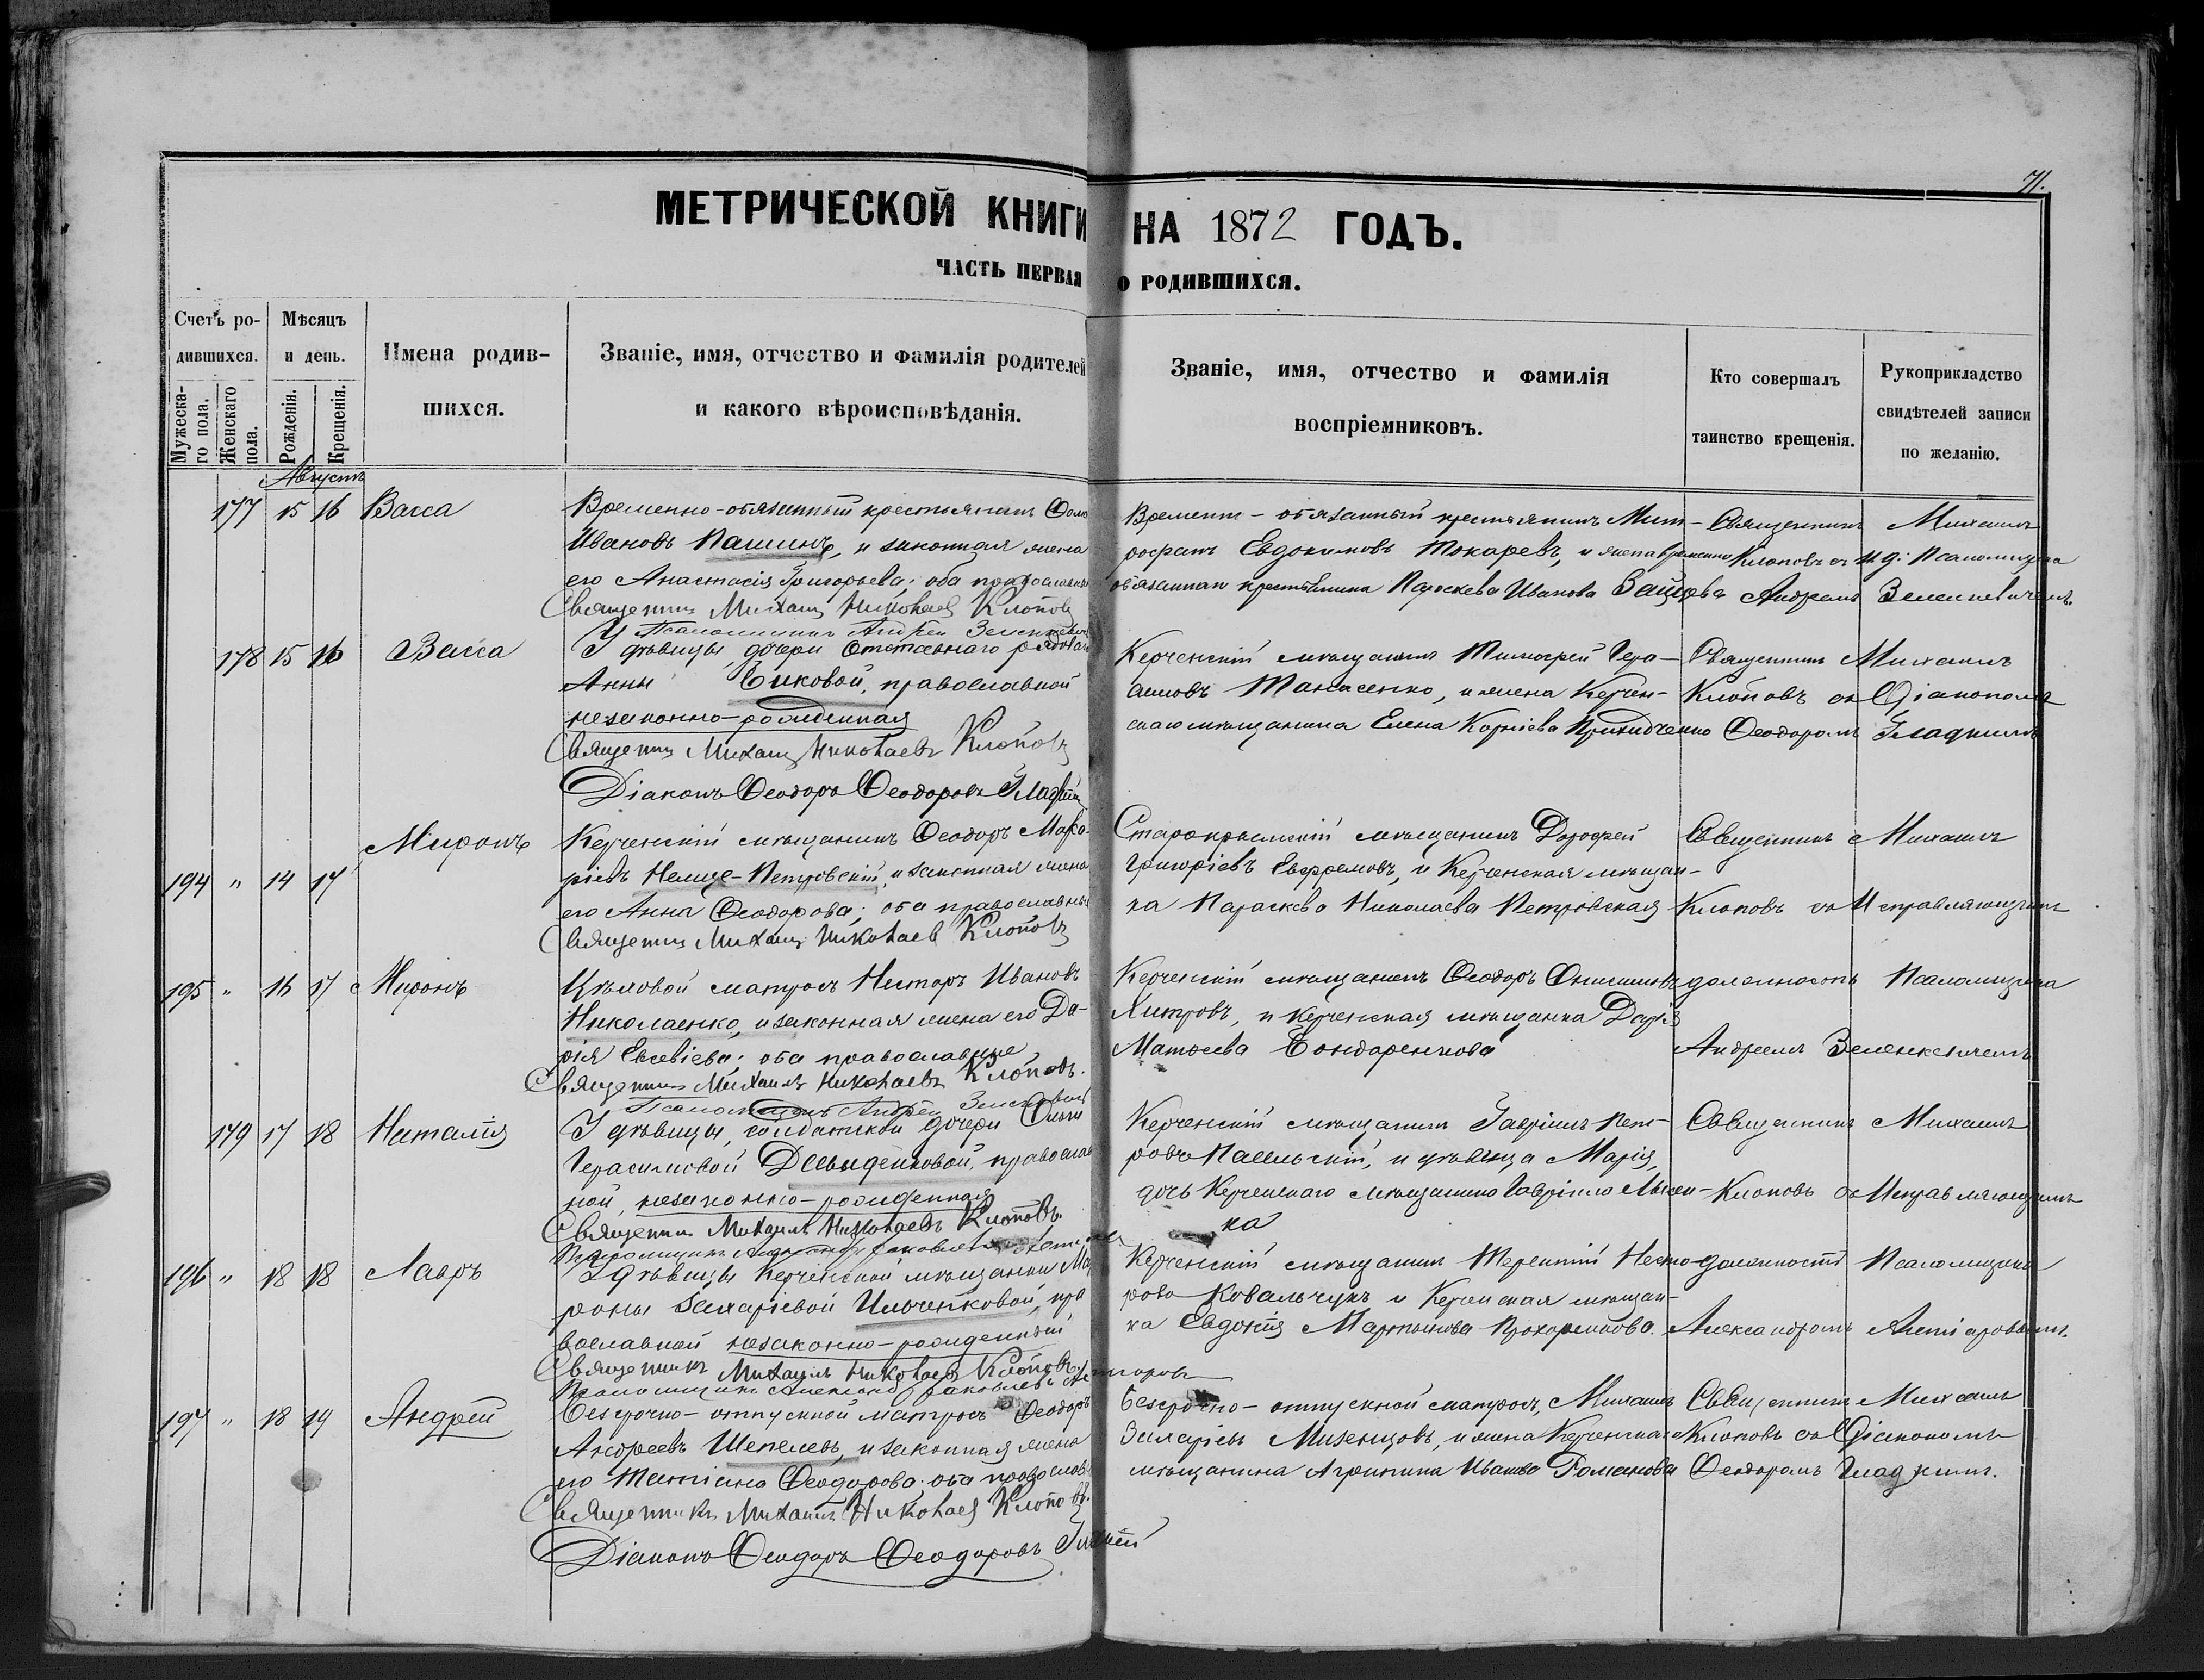 71.
МЕТРИЧЕСКОЙ КНИГИ НА 1872 ГОДЪ.
ЧАСТЬ ПЕРВАЯ О РОДИВШИХСЯ.
Счетъ родившихся.
Мужескаго пола.
Женскаго пола.
Мѣсяцъ и день.
Рожденія.
Крещенія.
Имена родившихся.
Званіе, имя, отчество и фамилія родителей
и какого вѣроисповѣданія.
Званіе, имя, отчество и фамилія
воспріемниковъ.
Кто совершалъ
таинство крещенія.
Рукоприкладство
свидѣтелей записи
по желанію.
Августъ
177 15 16 Васса
Временно-обязанный крестьянинъ
Ивановъ Пашинъ, и законная жена
его Анастасія Григорьева; оба православные
Священникъ Михаилъ Николаевъ Клоповъ
Псаломщикъ Андрей Зеленкевичъ
Временно-обязанный крестьянинъ Мит-
рофанъ Евдокимовъ Токаревъ, и жена временно
обязаннаго крестьянина Параскева Иванова Зайцева
Священникъ Михаилъ
Клоповъ съ И. д. Псаломщика
Андреемъ Зеленкевичемъ.
178 15 16 Васса
У дѣвицы, дочери отставнаго рядоваго
Анны Быковой, православной
незаконно-рожденная
Священникъ Михаилъ Николаевъ Клоповъ
Діаконъ Ѳеодоръ Ѳеодоровъ Гладкій
Керченскій мѣщанинъ Тимоѳей Гера-
симовъ Танасенко, и жена Керчен-
скаго мѣщанина Елена Корніева Приходченко
Священникъ Михаилъ
Клоповъ съ Діакономъ
Ѳеодоромъ Гладкимъ
194 " 14 17 Миронъ
Керченскій мѣщанинъ Ѳеодоръ Мака-
ріевъ Немце-Петровскій, и законная жена
его Анна Ѳеодорова; оба православные
Священникъ Михаилъ Николаевъ Клоповъ
Старокрымскій мѣщанинъ Дороѳей
Григоріевъ Ефремовъ, и Керченская мѣщан-
ка Параскева Николаева Петровская
Священникъ Михаилъ
Клоповъ съ Исправляющимъ
195 " 16 17 Миронъ
Цѣловой матросъ Несторъ Ивановъ
Николаенко, и законная жена его Да-
рія Евсевіева; оба православные
Священникъ Михаилъ Николаевъ Клоповъ.
Псаломщикъ Андрей Зеленкевичъ
Керченскій мѣщанинъ Ѳеодоръ Онисимовъ
Хитровъ, и Керченская мѣщанка Дарія
Матѳеева Бондаренкова
должность Псаломщика
Андреемъ Зеленкевичемъ
179 17 18 Наталія
У дѣвицы, солдатской дочери
Герасимовой Демиденковой, православ
ной, незаконно-рожденная
Священникъ Михаилъ Николаевъ Клоповъ.
Псаломщикъ Александръ Яковлевъ
Керченскій мѣщанинъ Гавріилъ Пет-
ровъ и дѣвица Марія,
дочь Керченскаго мѣщанина Гавріила
ка
Священникъ Михаилъ
Клоповъ съ Исправляющимъ
196 " 18 18 Лавръ
У дѣвицы Керченской мѣщанки Мат
роны Захаріевой Ильченковой, пра
вославной незаконно-рожденный
Священникъ Михаилъ Николаевъ Клоповъ.
Псаломщикъ Александръ Яковлевъ
Керченскій мѣщанинъ Терентій Несто-
ровъ Ковальчукъ и Керченская мѣщан-
ка Евдокія Мартынова Прохоренкова.
должность Псаломщика
Александромъ
197 " 18 19 Андрей
Безсрочно-отпускной матросъ Ѳеодоръ
Андреевъ Шепелевъ, и законная жена
его Татіана Ѳеодорова; оба православ.
Священникъ Михаилъ Николаевъ Клоповъ.
Діаконъ Ѳеодоръ Ѳеодоровъ Гладкій
Безсрочно-отпускной матросъ, Михаилъ
Иларіевъ Мизенцовъ, и жена Керченскаго
мѣщанина Агрипина Иванова Романова
Священникъ Михаилъ
Клоповъ съ Діакономъ
Ѳеодоромъ Гладкимъ.